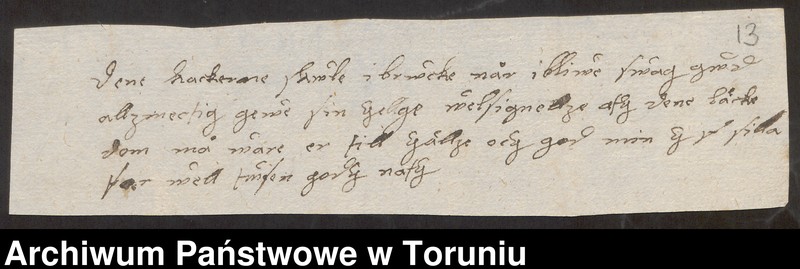 13
dene kackerne skwle i brwcke når i bliwe swag gwd
allzmectig gewe sin hellge welsignellze att dene läcke
dom må ware er till hällze och god min h s silla
far well twsen god natt
Archiwum Państwowe w Toruniu